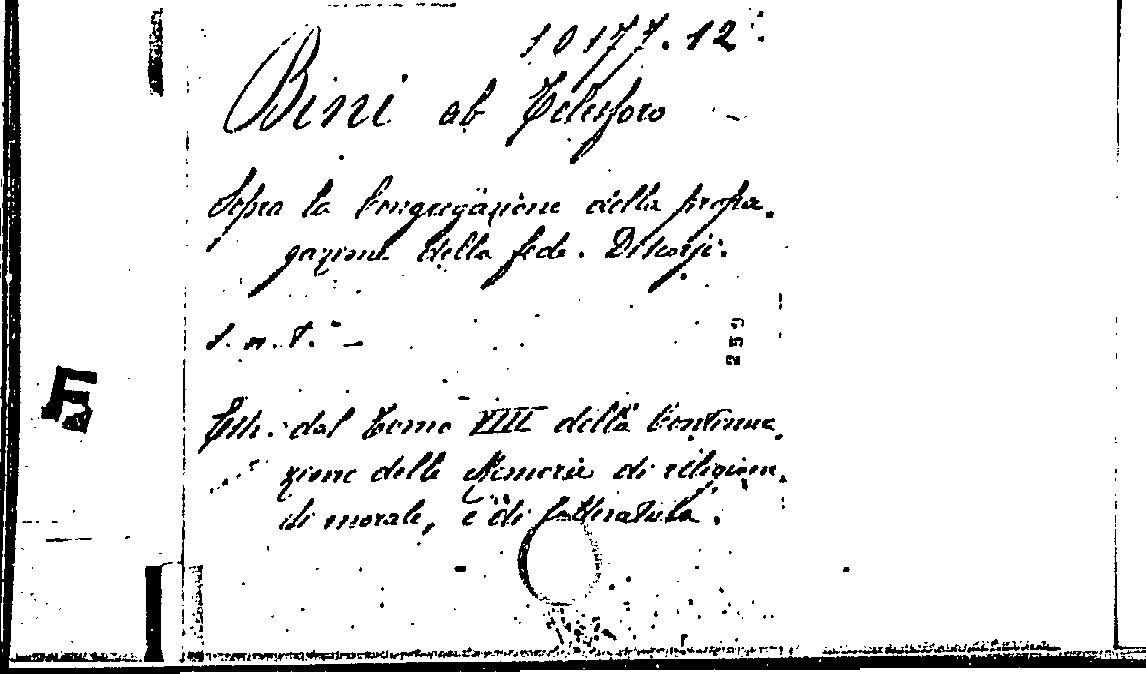 10177.12
Bini ab Telesforo
Sopra la Congregazione della propa.
gazione della fede. Discorsi.
s.n.t. -
259
Estr. dal Tomo XIII della Continua.
zione delle Memorie di religione,
di morale, e di letteratura.